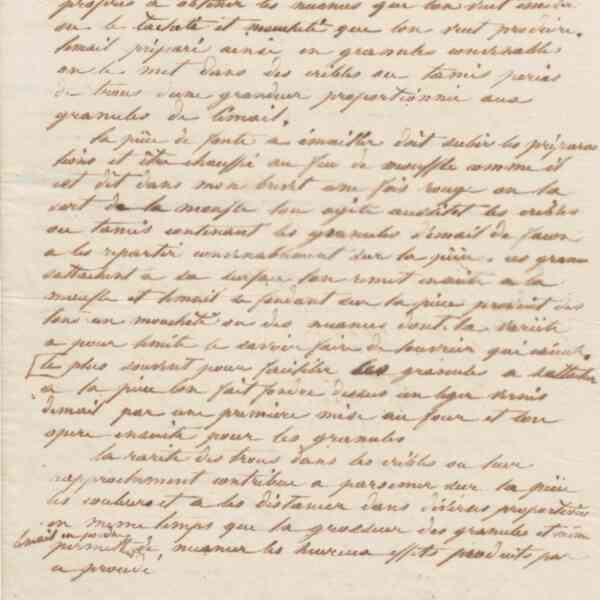 propres a obtenir les nuances que lon veut
ou le tacheté et moucheté que lon veut produire.
lemail préparé ainsi en granules convenables
on le met dans des cribles ou tamis percés
de trous dune grandeur proportionnée aux
granules de lémail.
la pièce de fonte a émailler doit subir les prépara
tions et être chauffé au feu de mouffle comme il
est dit dans mon brevet une fois rouge on la
sort de la moufle lon agite aussitôt les cribles
ou tamis contenant les granules démail de facon
a les repartir convenablement sur la pièce. ces granu
sattachent a sa surface lon remet ensuite a la
moufle et lemail se fondant sur la pièce produit des
tons un moucheté ou des nuances dont la variété
a pour limite le savoir faire de louvrier qui exécute.
le plus souvent pour faciliter les granules a sattacher
a la pièce lon fait fondre dessus un léger vernis
démail par une première mise au four et lon
opere ensuite pour les granules
la rareté des trous dans les cribles ou leur
rapprochement contribue a parsemer sur la pièce
les couleurs et a les distancer dans diverses proportions
en même temps que la grosseur des granules et même
lémail en poudre
permettent de nuancer les heureux effets produits par